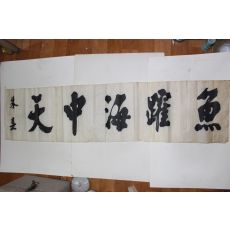 魚躍海中天
朱熹